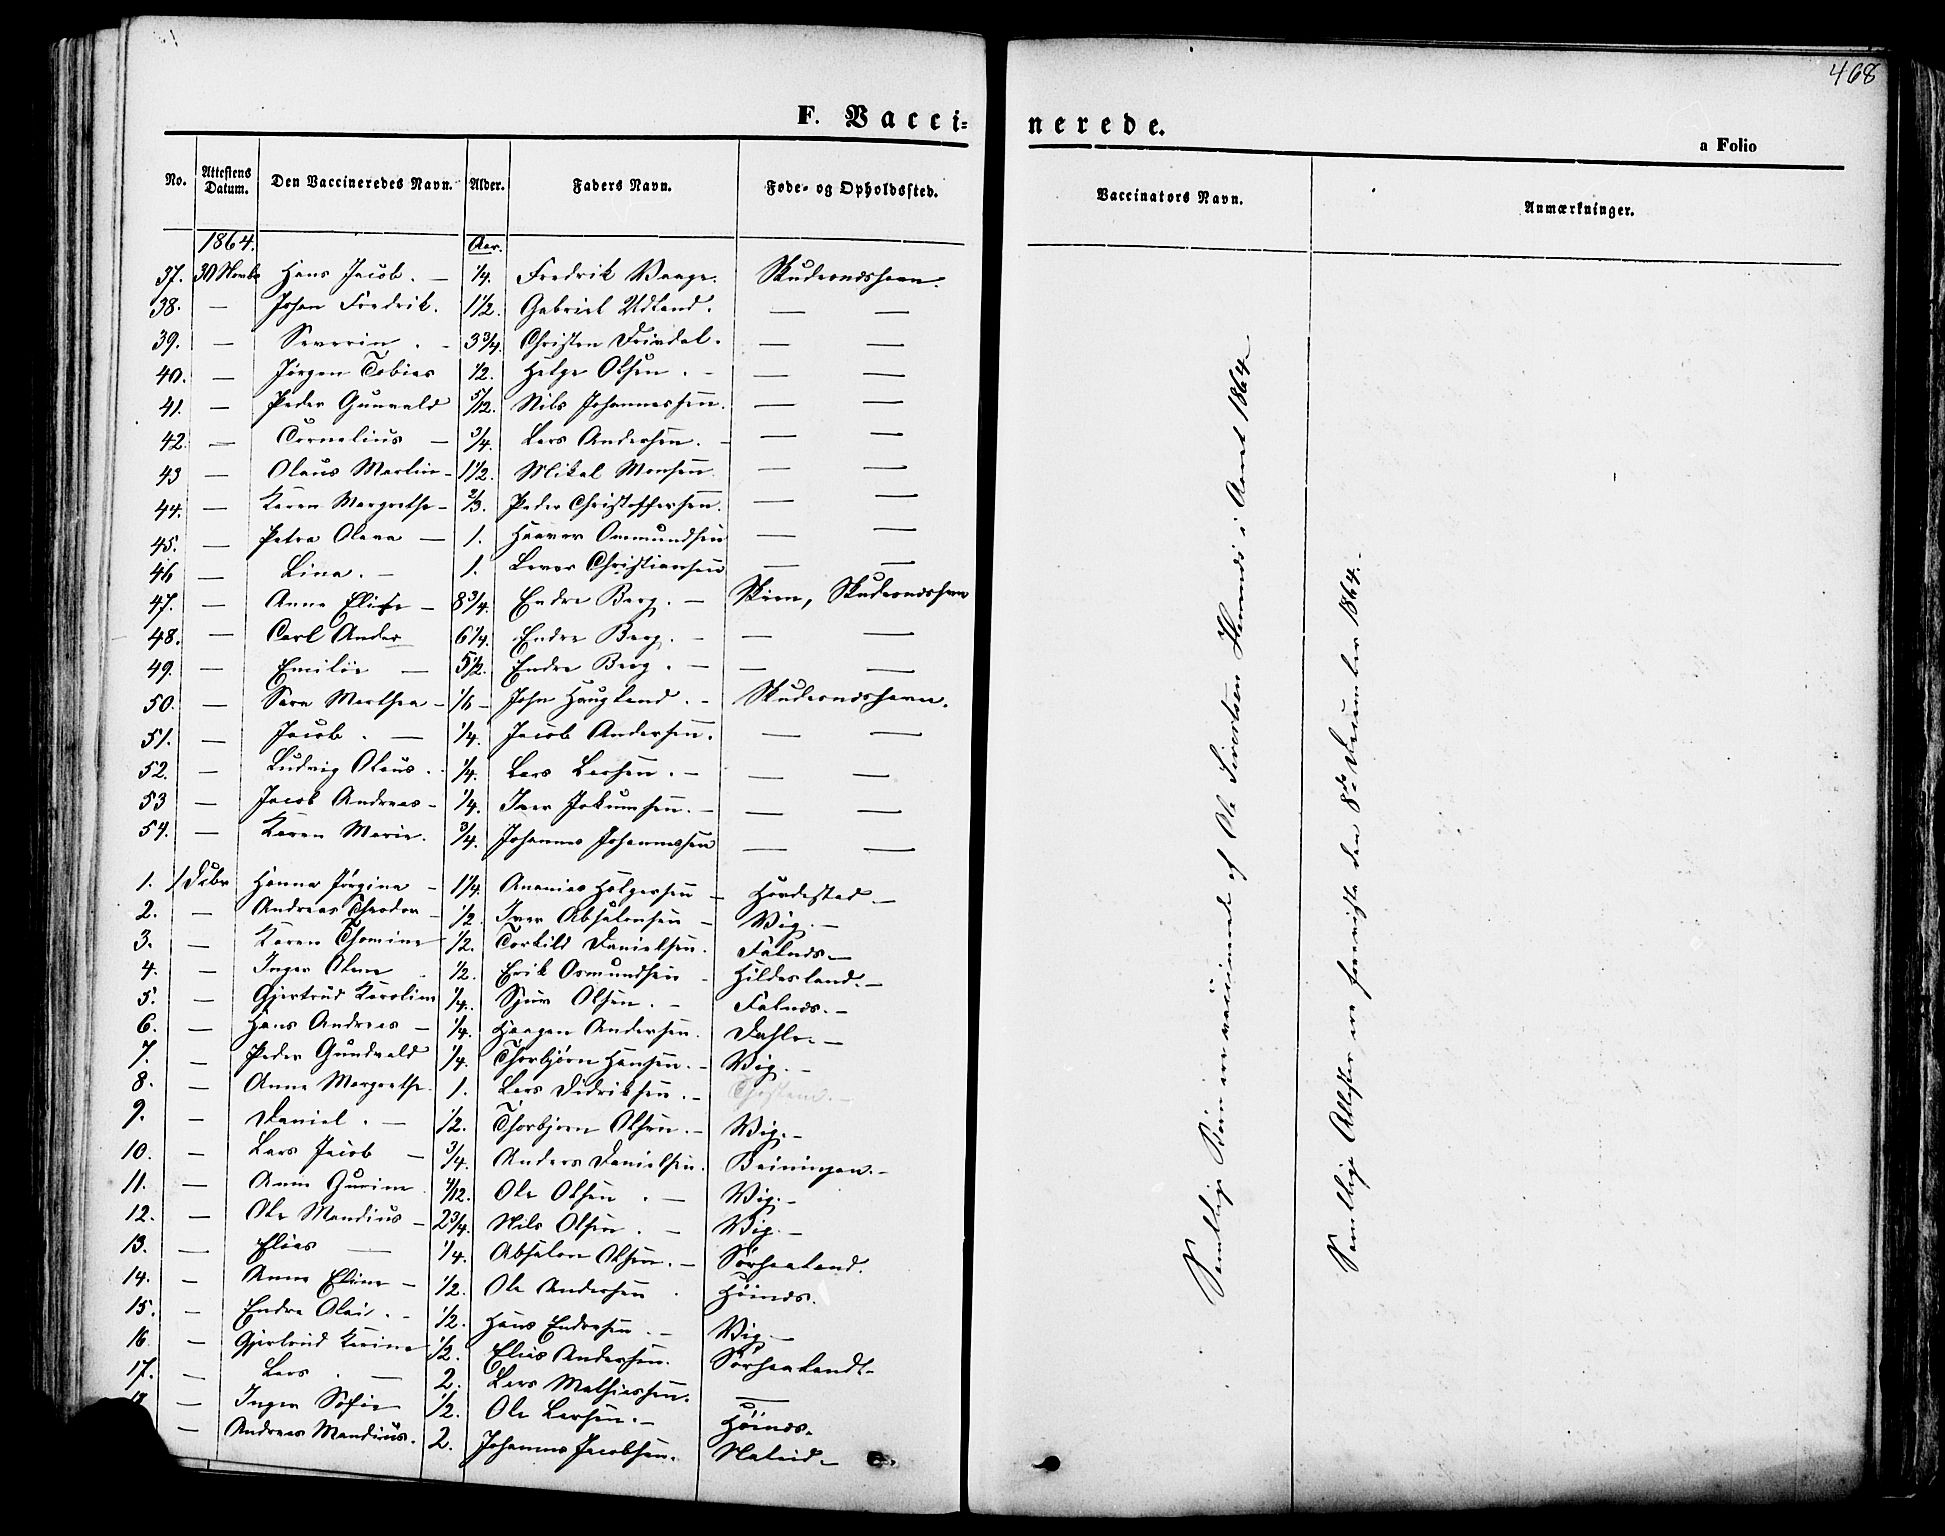 468
F. Vaccinerede.
a Folio
No. Attestens Datum. Den Vaccineredes Navn. Alder. Faders Navn. Føde- og Opholdssted. Vaccinators Navn. Anmærkninger.
1864. Aar.
37. 30 Novbr Hans Jacob. — 1/4. Fredrik Waage. Skudesnæshavn.
38. — Johan Fredrik. 1 1/2. Gabriel Udland. — —
39. — Severin. - 3 3/4. Christen — —
40. — Jørgen Tobias 1/2. Helge Olsen. - — —
41. — Peder Gunvald 5/12. Nils Johannessen. — —
42. — Cornelius — 3/4. Lars Andersen. - — —
43 — Olaus Martin - 1 1/2. Mikal Monsen. — —
44. — Karen Margrethe - 2/3. Peder Christoffersen. — —
45. — Petra Olena — 1. Haaver Osmundsen — —
46 — Lina. - 1. Christiansen — —
47. — Anne Elise - 8 3/4. Endre Berg. - Skudesnæshavn
48. — Carl Ander 6 1/4. Endre Berg. - — —
49. — Emilie — 5 1/2. Endre Berg. - — —
50. — Sara Marthea - 1/6 - John Haugland. - Skudesnæshavn.
51. — Jacob. — 1/4. Jacob Andersen. — —
52. — Ludvig Olaus. 1/4. Lars Larsen. - — —
53 — Jacob Andreas - 1/4. Iver Jokumsen. - — —
54. — Karen Marie. 3/4. Johannes Johannessen — —
1. 1 Decbr Hanna Jørgine - 1 1/4. Ananias Holgersen - Hordestad -
2. — Andreas Theodor - 1/2. Iver Absalonsen - Wig. -
3. — Karen Thomine 1/2. Torkild Danielsen. Falnæs -
4. — Inger Olene 1/2. Erik Osmundsen - Hildesland. -
5. — Gjertrud Karoline 1/4. Sjur Olsen. - Falnæs. -
6. — Hans Andreas - 1/4. Haagen Andersen. Dahle. -
7. — Peder Gundvald 1/4. Thorbjørn Hansen. - Wig. -
8. — Anne Margrethe. 1. Lars Didriksen. -
9. — Daniel. - 1/2. Thorbjørn Olsen. - Wig. -
10. — Lars Jacob - 3/4. Anders Danielsen. Beiningen. -
11. — Anne Gurine. Ole Olsen. - Wig. -
12. — Ole Mandius - 2 3/4. Nils Olsen. - Wig. -
13. — Elias — 1/4. Absalon Olsen. - Sørhaaland.
14. — Anne Eline - 1/2. Ole Andersen. Høinæs.
15. — Endre Olai. - 1/2. Hans Endresen. - Wig. -
16 — Gjertrud Karine 1/2. Elias Andersen. Sørhaaland -
17. — Lars. — 2. Lars Mathiassen. —
18 — Inger Sofie 1/2. Ole Larsen. - Høinæs.
— Andreas Mandius. 2. Johannes Jacobsen.
Samtlige Børn ere vaccinerede af Ole Sivertsen Hemnæs i Aaret 1864.
Samtlige Attester ere foreviste den 8de December 1864.